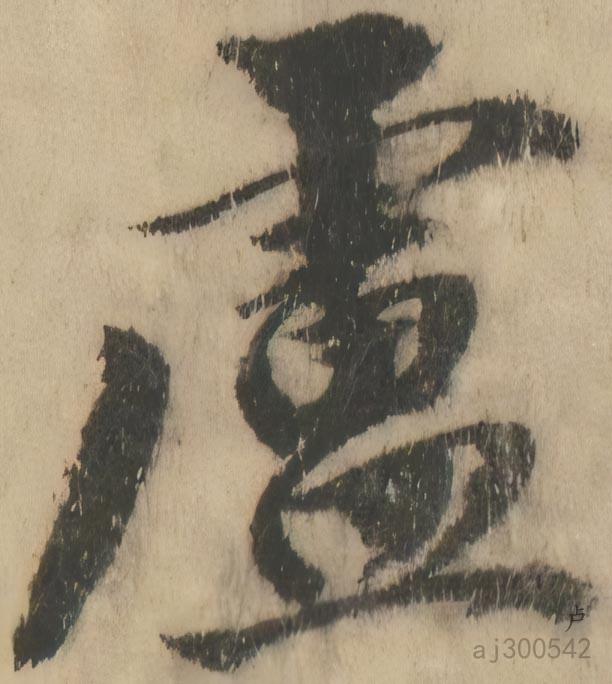 盧
卢
aj300542